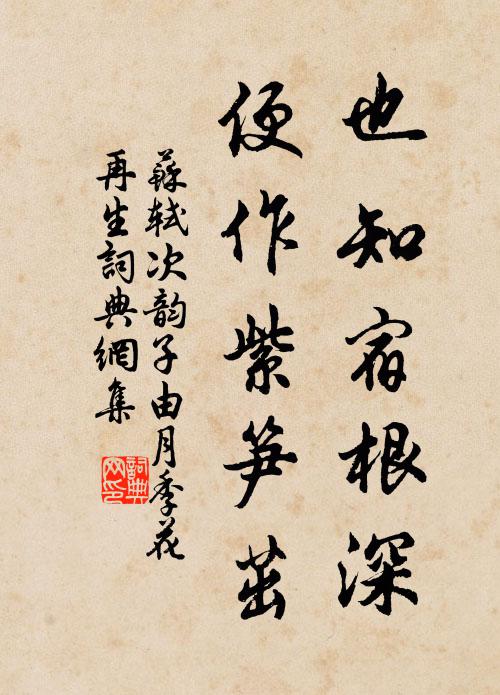 也知宿根深
便作紫笋茁
蘇軾次韵子由月季花
再生詞典網集
詞典网印